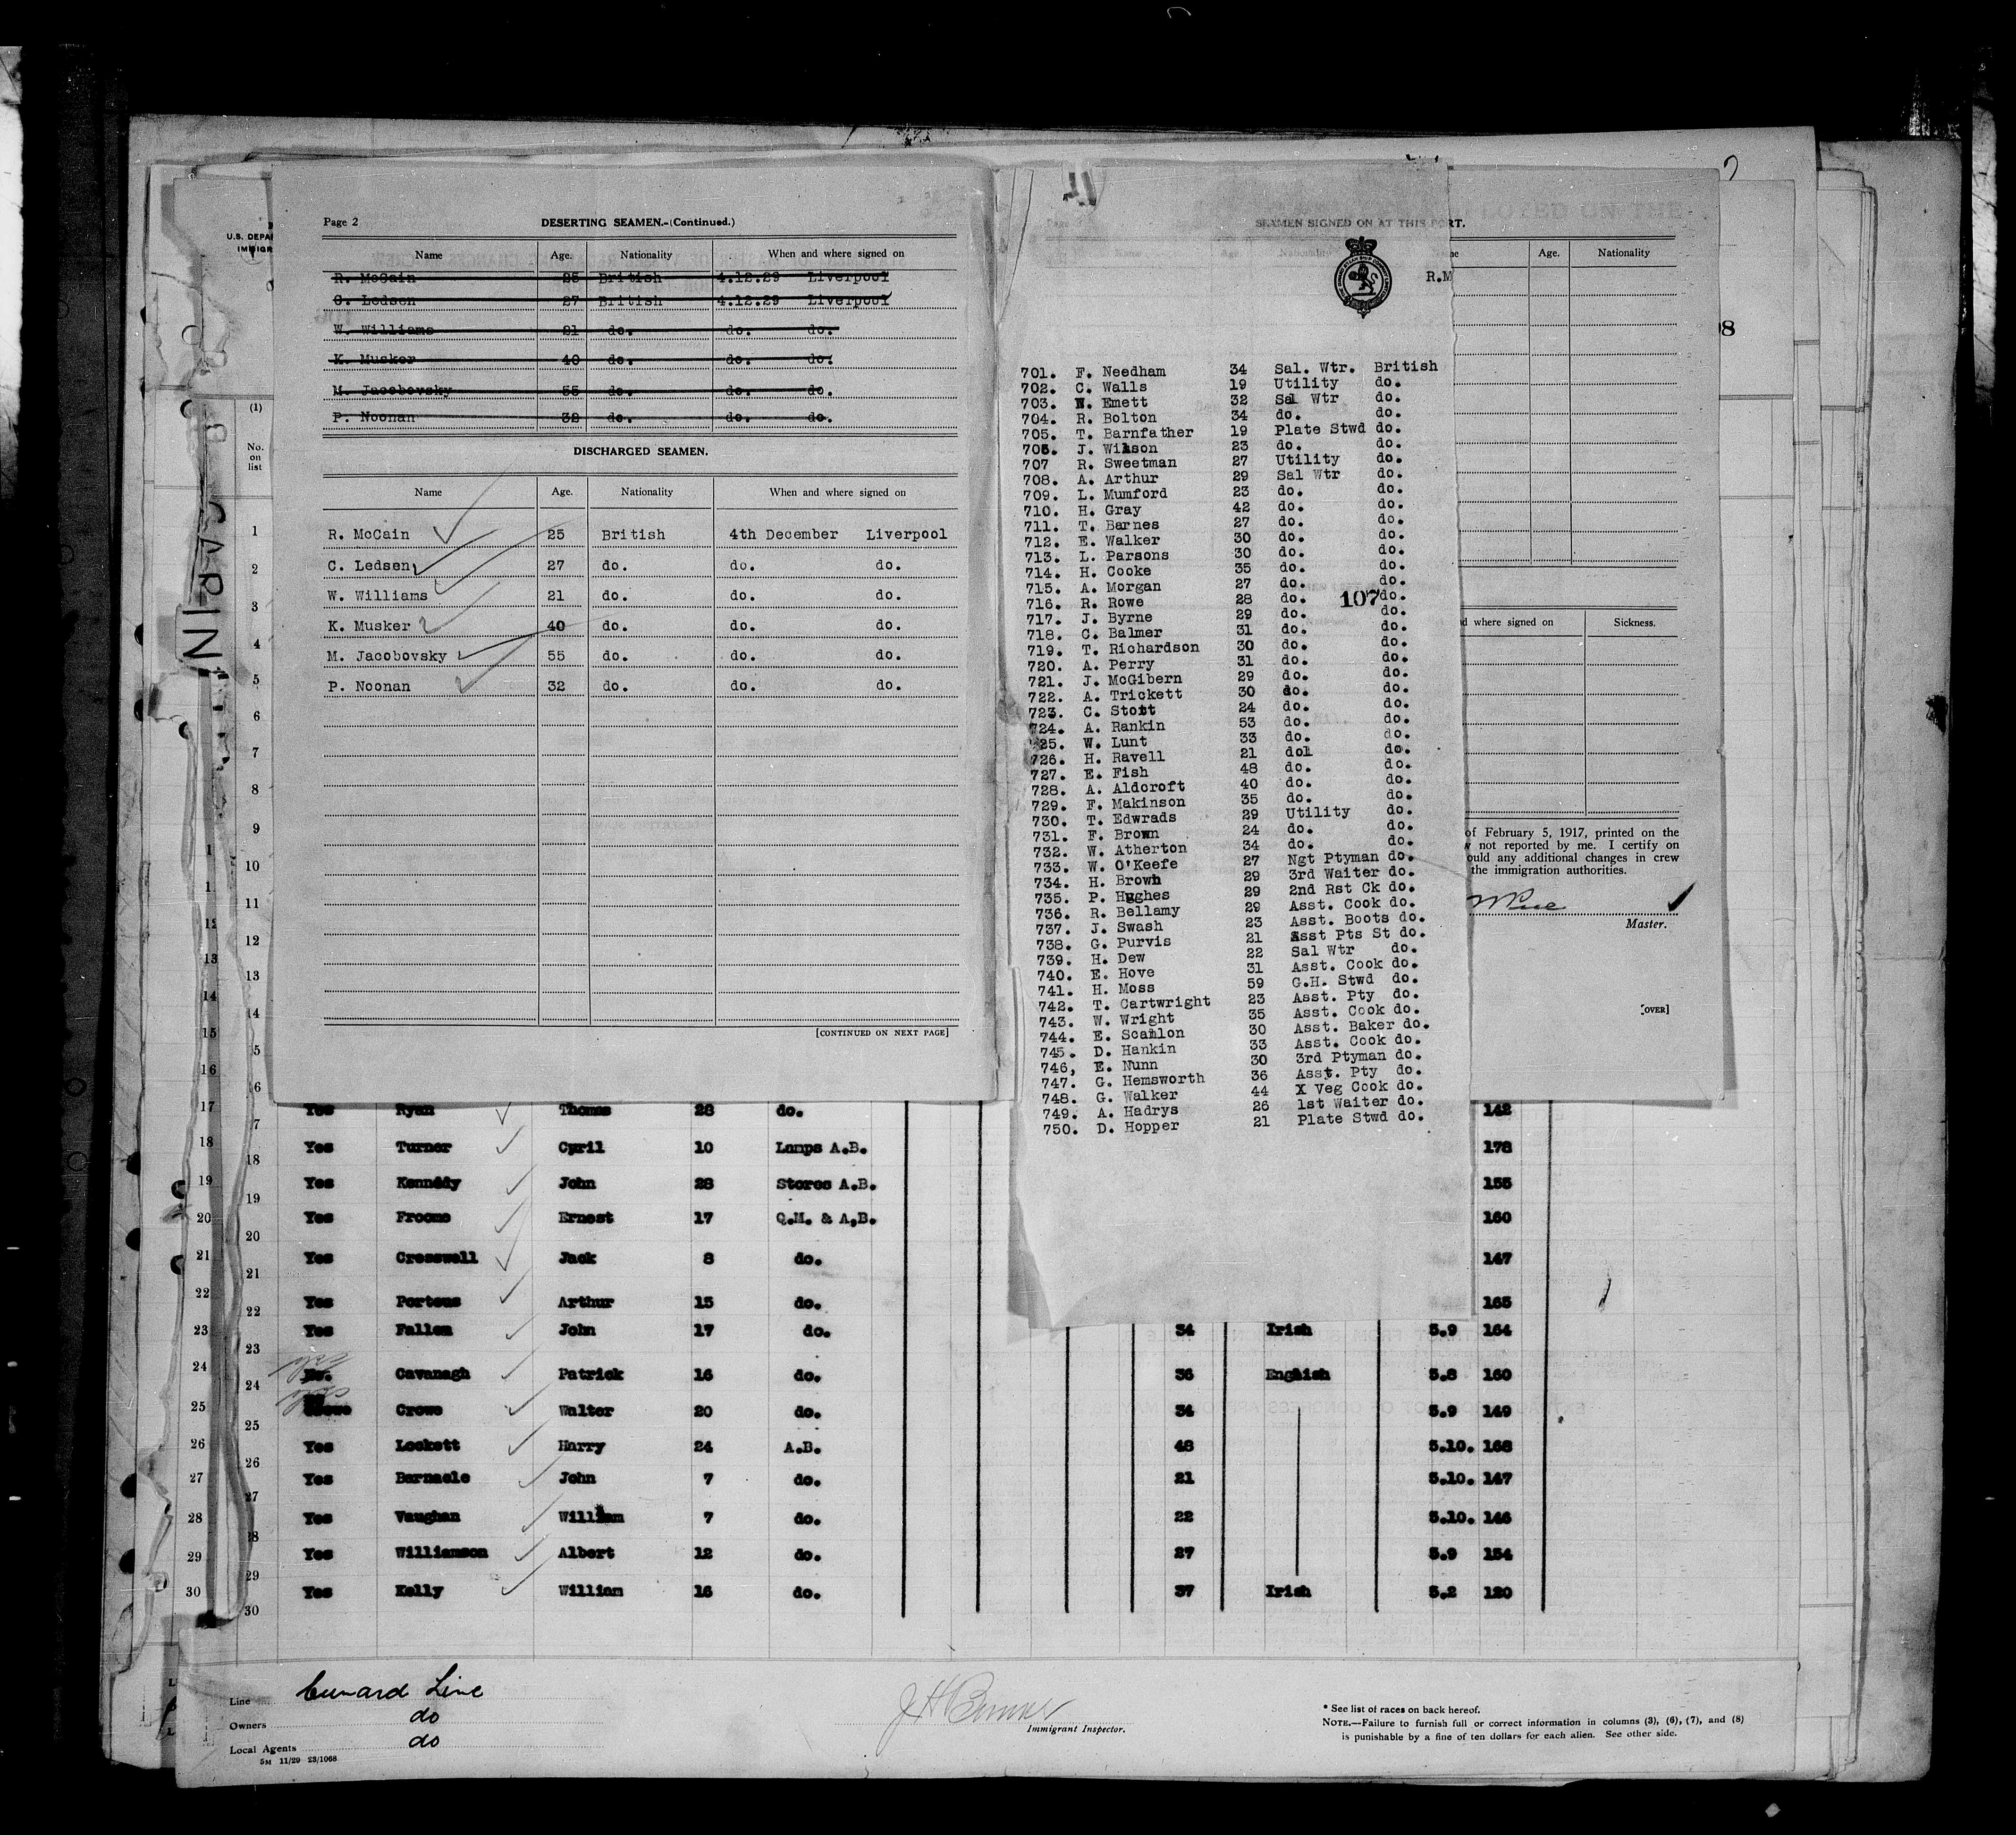 Page 2
DESERTING SEAMEN.-(Continued.)
Name Age. Nationality When and where signed on
R. McCain 25 British 4.12.29 Liverpool
C. Ledsen 27 British 4.12.29 Liverpool
W. Williams 21 do. do. do.
K. Musker 40 do. do. do.
M. Jacobovsky 55 do. do. do.
P. Noonan 32 do. do. do.
DISCHARGED SEAMEN.
Name Age. Nationality When and where signed on
R. McCain 25 British 4th December Liverpool
C. Ledsen 27 do. do. do.
W. Williams 21 do. do. do.
K. Musker 40 do. do. do.
M. Jacobovsky 55 do. do. do.
P. Noonan 32 do. do. do.
[CONTINUED ON NEXT PAGE]
SEAMEN SIGNED ON AT THIS PORT.
701. F. Needham 34 Sal. Wtr. British
702. C. Walls 19 Utility do.
703. N. Emett 32 Sal Wtr do.
704. R. Bolton 34 do. do.
705. T. Barnfather 19 Plate Stwd do.
706. J. Wilson 23 do. do.
707 R. Sweetman 27 Utility do.
708. A. Arthur 29 Sal Wtr do.
709. L. Mumford 23 do. do.
710. H. Gray 42 do. do.
711. T. Barnes 27 do. do.
712. E. Walker 30 do. do.
713. L. Parsons 30 do. do.
714. H. Cooke 35 do. do.
715. A. Morgan 27 do. do.
716. R. Rowe 28 do. 107 do.
717. J. Byrne 29 do. do.
718. C. Balmer 31 do. do.
719. T. Richardson 30 do. do.
720. A. Perry 31 do. do.
721. J. McGibern 29 do. do.
722. A. Trickett 30 do. do.
723. C. Stott 24 do. do.
724. A. Rankin 53 do. do.
725. W. Lunt 33 do. do.
726. H. Ravell 21 dol do.
727. E. Fish 48 do. do.
728. A. Aldcroft 40 do. do.
729. F. Makinson 35 do. do.
730. T. Edwrads 29 Utility do.
731. F. Brown 24 do. do.
732. W. Atherton 34 do. do.
733. W. O'Keefe 27 Ngt Ptyman do.
734. H. Brown 29 3rd Waiter do.
735. P. Hughes 29 2nd Rst Ck do.
736. R. Bellamy 29 Asst. Cook do.
737. J. Swash 23 Asst. Boots do.
738. G. Purvis 21 Asst Pts St do.
739. H. Dew 22 Sal Wtr do.
740. E. Hove 31 Asst. Cook do.
741. H. Moss 59 G.H. Stwd do.
742. T. Cartwright 23 Asst. Pty do.
743. W. Wright 35 Asst. Cook do.
744. E. Scanlon 30 Asst. Baker do.
745. D. Hankin 33 Asst. Cook do.
746, E. Nunn 30 3rd Ptyman do.
747. G. Hemsworth 36 Asst. Pty do.
748. G. Walker 44 X Veg Cook do.
749. A. Hadrys 26 1st Waiter do.
750. D. Hopper 21 Plate Stwd do.
Age. Nationality
R.M
98
d where signed on Sickness.
of February 5, 1917, printed on the
not reported by me. I certify on
ould any additional changes in crew
the immigration authorities.
Master.
[OVER]
U.S. DEPA
IMMIGR
(1)
No.
on
list
17 Yes Ryan Thomas 28 do. 142
18 Yes Turner Cyril 10 Lamps A.B. 178
19 Yes Kennedy John 28 Stores A.B. 155
20 Yes Froome Ernest 17 Q.M. & A.B. 160
21 Yes Cresswell Jack 8 do. 147
22 Yes Porteus Arthur 15 do. 165
23 Yes Fallen John 17 do. 34 Irish 5.9 164
24 No. Cavanagh Patrick 16 do. 36 English 5.8 160
25 Crowe Walter 20 do. 34 5.9 149
26 Yes Lockett Harry 24 A.B. 48 5.10. 168
27 Yes Barnacle John 7 do. 21 5.10. 147
28 Yes Vaughan William 7 do. 22 5.10. 146
29 Yes Williamson Albert 12 do. 27 5.9 154
30 Yes Kelly William 16 do. 37 Irish 5.2 120
Line Cunard Line
Owners do
Local Agents do
5M 11/29 23/1068
Immigrant Inspector.
* See list of races on back hereof.
NOTE.—Failure to furnish full or correct information in columns (3), (6), (7), and (8)
is punishable by a fine of ten dollars for each alien. See other side.